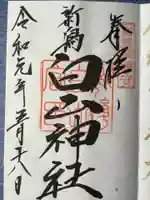 奉拝
新潟
白山神社
令和元年五月十八日